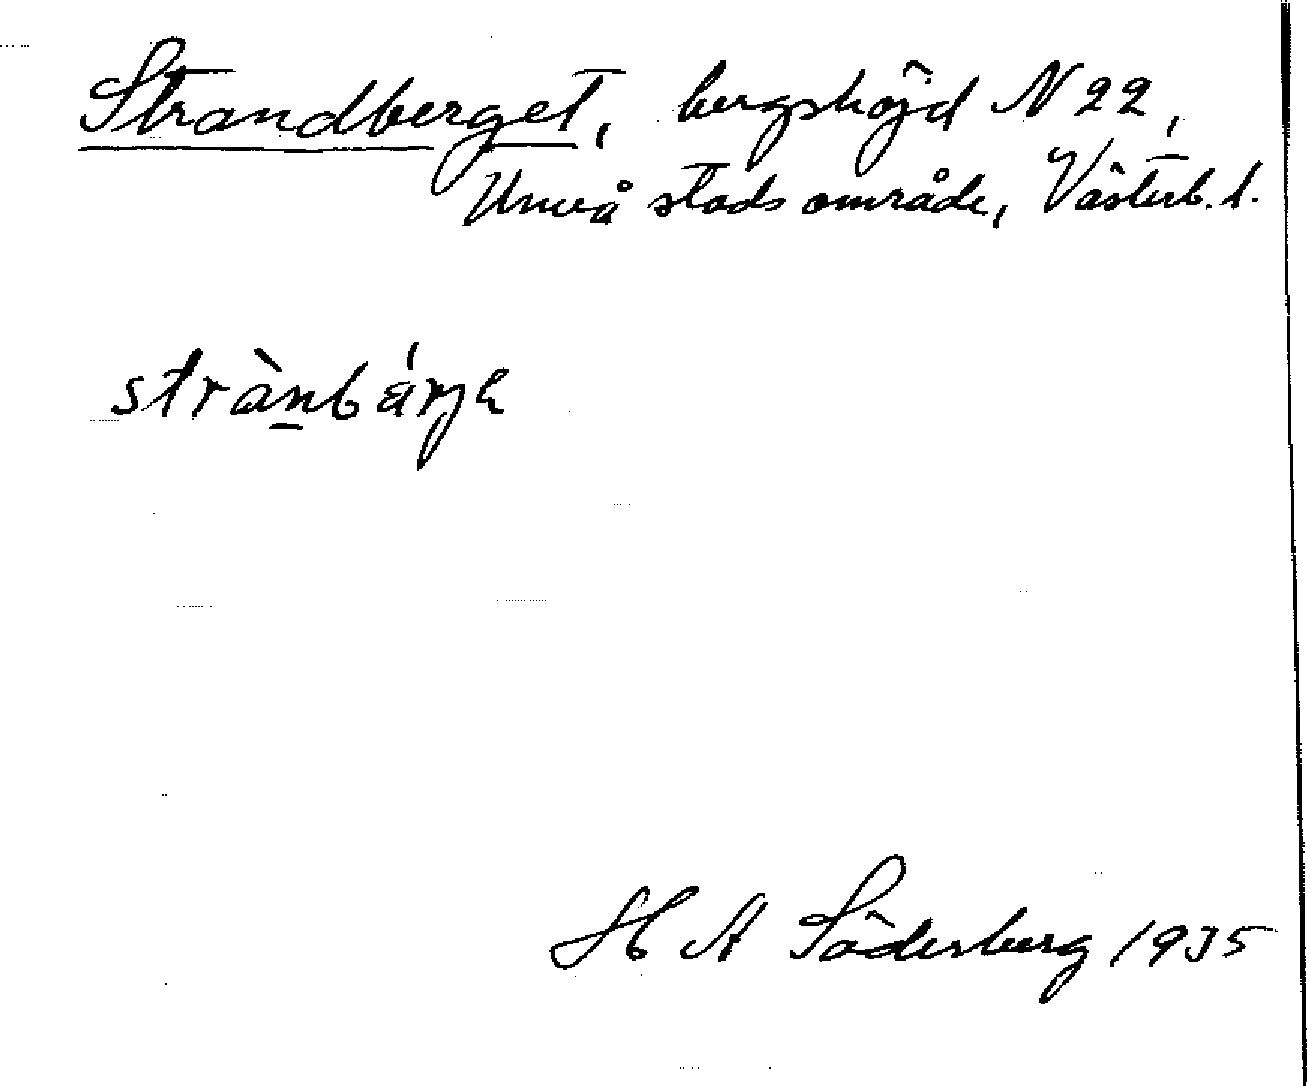 Strandberget, bergshöjd N 22,
Umeå stads område, Västerb. l.
strànbárjə
H A Söderberg 1935